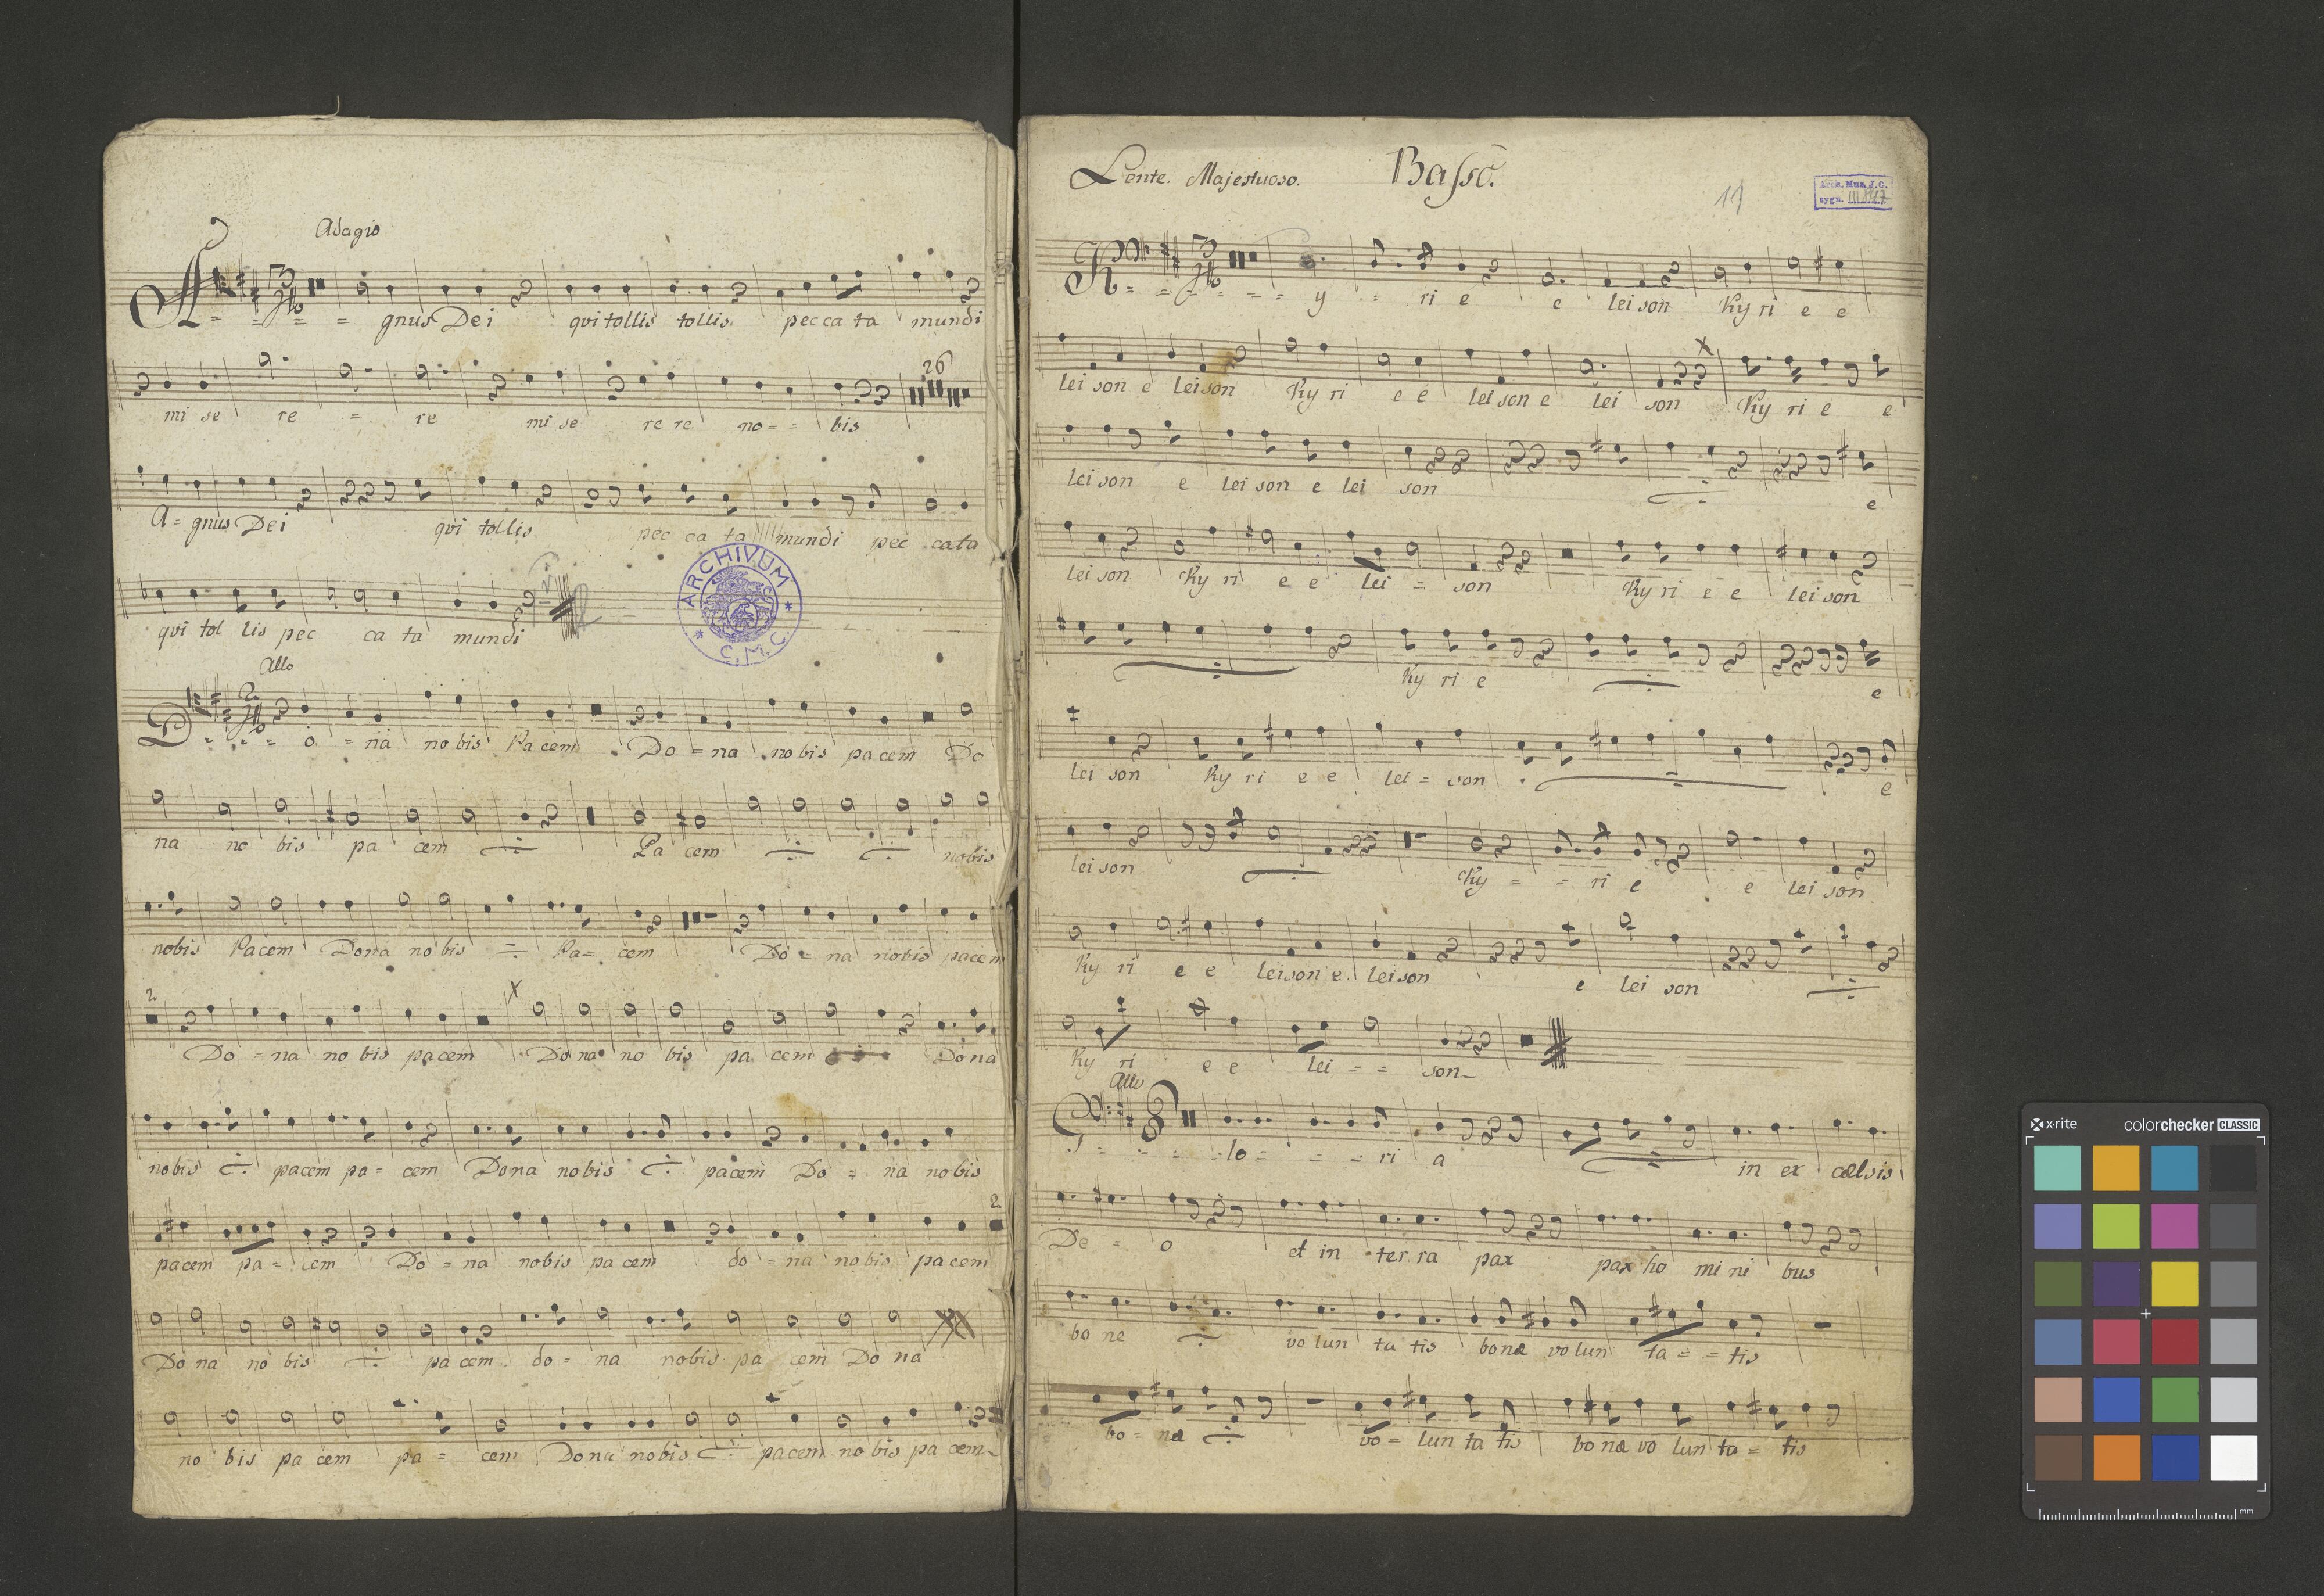 Adagio
A = = = = gnus Dei qui tollis tollis peccata mundi
mi se re = re mi se re re no = = bis
26
A = gnus Dei qui tollis pec ca ta mundi pec cata
qui tol lis pec ca ta mundi
ARCHIVUM C.M.C
Allo
D = = = o = na nobis Pacem Do = na nobis pacem Do
na no bis pa cem Pa cem nobis
nobis Pacem Dona nobis Pa = cem Do = na nobis pacem
2
Do = na no bis pacem Dona no bis pa cem Dona
nobis pacem pa = cem Dona nobis pacem Do = na nobis
2
pacem pa = cem Do = na nobis pa cem do = na nobis pa cem
Dona no bis pa cem do = na nobis pa cem Do na
no bis pa cem pa = cem Dona nobis pacem no bis pa cem
Lente. Majestuoso. Basso.
11
Arch. Mus. J.G.
sygn.
K = = = = = y = ri e e lei son Ky ri e e
lei son e leison Ky ri e e lei son e lei son Ky ri e e
lei son e lei son e lei son e
lei son Ky ri e e lei = son Ky ri e e lei son
Ky ri e e
lei son Ky ri e e lei = son e
lei son Ky = = ri e e lei son
Ky ri e e leison e leison e lei son
Ky ri e e lei = = son
Allo
G = = = lo = = = ri a in ex cælsis
De = o et in ter ra pax pax ho mi ni bus
bo ne vo lun ta tis bonæ vo lun ta = = tis
bo = næ vo = lun ta tis bo næ vo lun ta = tis
x·rite colorchecker CLASSIC
mm